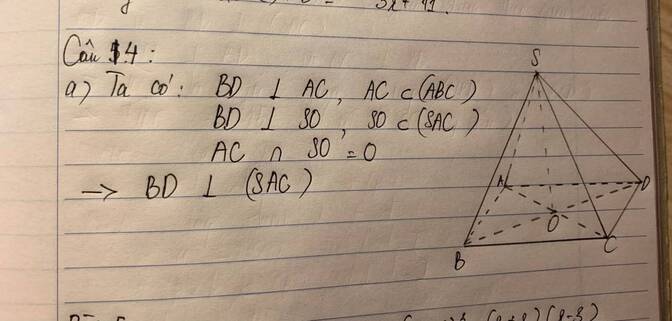 Câu 4:
a) Ta có: BD ⊥ AC, AC ⊂ (ABC)
BD ⊥ SO, SO ⊂ (SAC)
AC ∩ SO = O
→ BD ⊥ (SAC)
S
A
D
O
B
C